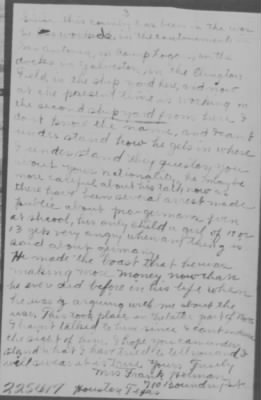 3
Since this country has been in the war
he worked in the cantonment
San Antonio, in Camp Logan, on the
docks in Galveston, in the
Field, in the ship yard here, and now
at the present time is working in
the second ship yard from here I
don't know the name, and I can't
understand how he gets in where
I understand they question you
about your nationality, he may be
more careful about his talk now as
there have been several arrest made
public about pro-germans, even
at school, his only child a girl of 12 or
13 gets very angry when any thing is
said about germans.
He made the boast that he was
making more money now than
he ever did before in his life when
he was arguing with me about the
war. This took place in the latter part of
I haven't talked to him since I can't endure
the sight of him. I hope you can under
stand what I have tried to tell you and I
will swear it as true. Yours Truly
Mrs Frank Holman
710 St.
225417 Houston Texas